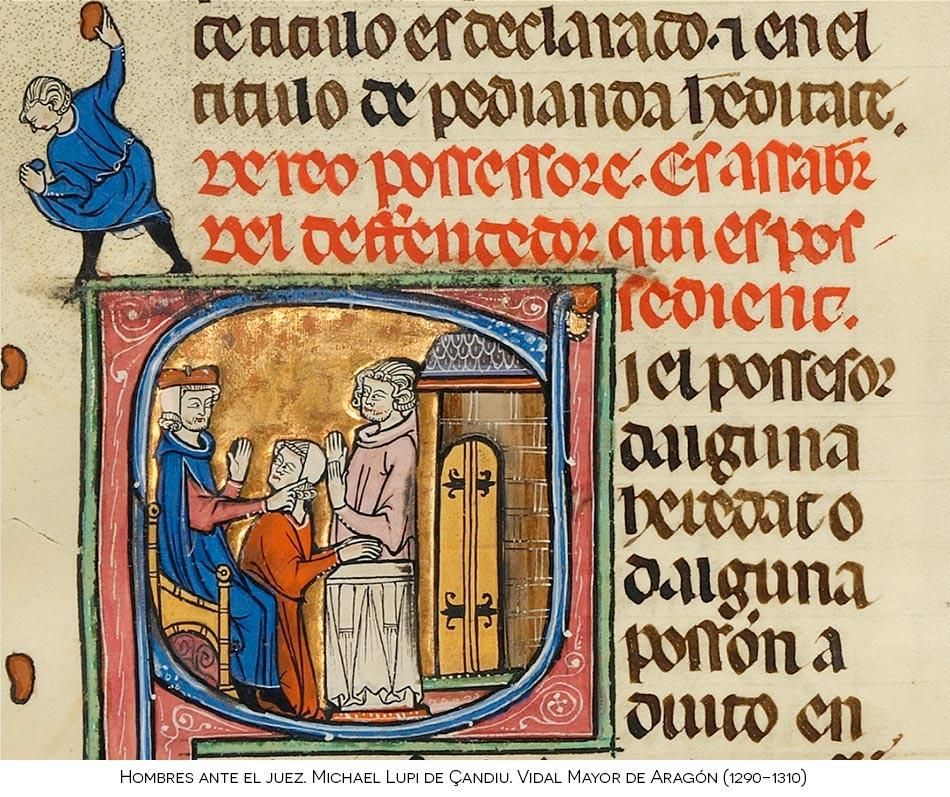 te titulo es declarado· ⁊ en el
titulo de pedianda hẽditate.
De reo possessore. Es assabr
del deffendedor qui es pos
sedient.
J el possesor
dalguna
heredat o
dalguna
possõn a
duito en
HOMBRES ANTE EL JUEZ. MICHAEL LUPI DE ÇANDIU. VIDAL MAYOR DE ARAGÓN (1290-1310)